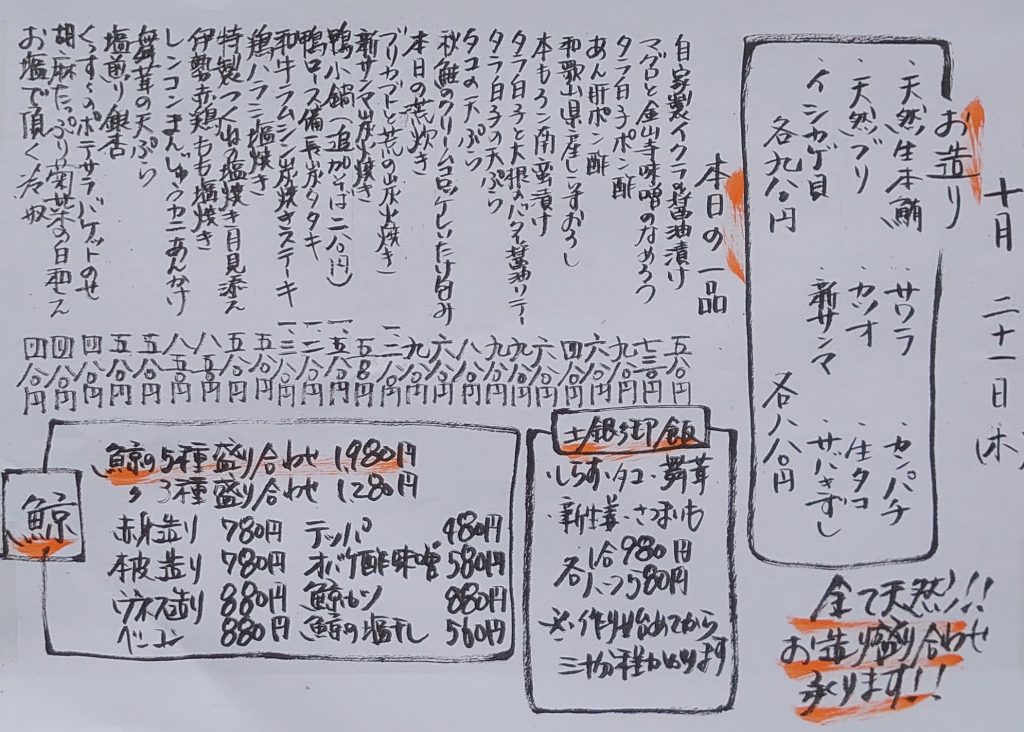 十月 二十一日（木）
お造り
・天然生本鮪 ・サワラ ・カンパチ
・天然ブリ ・カツオ ・生タコ
・イシカゲ貝 ・新サンマ ・サバきずし
各九八〇円 各八八〇円
全て天然!!
お造り盛り合わせ
承ります!!
本日の一品
自家製イクラ醤油漬け 五八〇円
マグロと金山寺味噌のなめろう 七三〇円
タラ白子ポン酢 九八〇円
あん肝ポン酢 六八〇円
和歌山県産しらすおろし 四八〇円
本もろこ南蛮漬け 六八〇円
タラ白子と大根のバター醤油ソテー 九八〇円
タラ白子の天ぷら 九八〇円
タコの天ぷら 八八〇円
秋鮭のクリームコロッケしいたけ包み 六八〇円
本日の荒炊き 九八〇円
ブリカブトと荒の炭火焼き
新サンマ炭火焼き
鴨小鍋（追加そばは二八〇円）
鴨ロース備長炭タタキ
和牛ラムシン炭焼きステーキ
鶏ハラミ塩焼き 五八〇円
特製つくね塩焼き月見添え 五八〇円
伊勢赤鶏もも塩焼き 八八〇円
レンコンまんじゅうカニあんかけ 八五〇円
舞茸の天ぷら 五八〇円
塩煎り銀杏 五八〇円
くっすーのポテサラバケットのせ 四八〇円
胡麻たっぷり菊菜の白和え 四八〇円
お塩で頂く冷奴 四八〇円
土鍋御飯
・しらす・タコ・舞茸
・新生姜・さつまいも
各 1合980円
ハーフ580円
※作り始めてから
三十分程かかります
鯨
鯨の5種盛り合わせ 1,980円
〃 3種盛り合わせ 1,280円
赤身造り 780円 テッパ 480円
本皮造り 780円 オバケ酢味噌 580円
ウネス造り 880円 鯨もツ 880円
ベーコン 880円 鯨の塩干し 560円